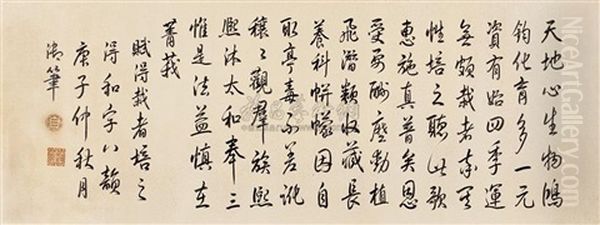 天地心生物鴻
鈞化育多一元
資有始四季運
無頗栽者天
性培之聽此歌
惠施真普矣恩
受酬麼動植
飛潛類收藏長
養科帡幪因自
取亭毒不差訛
穰〻觀群族熙〻
熙沐太和奉三
惟是法益慎在
菁莪
賦得栽者培之
得和字八韻
庚子仲秋月
御筆